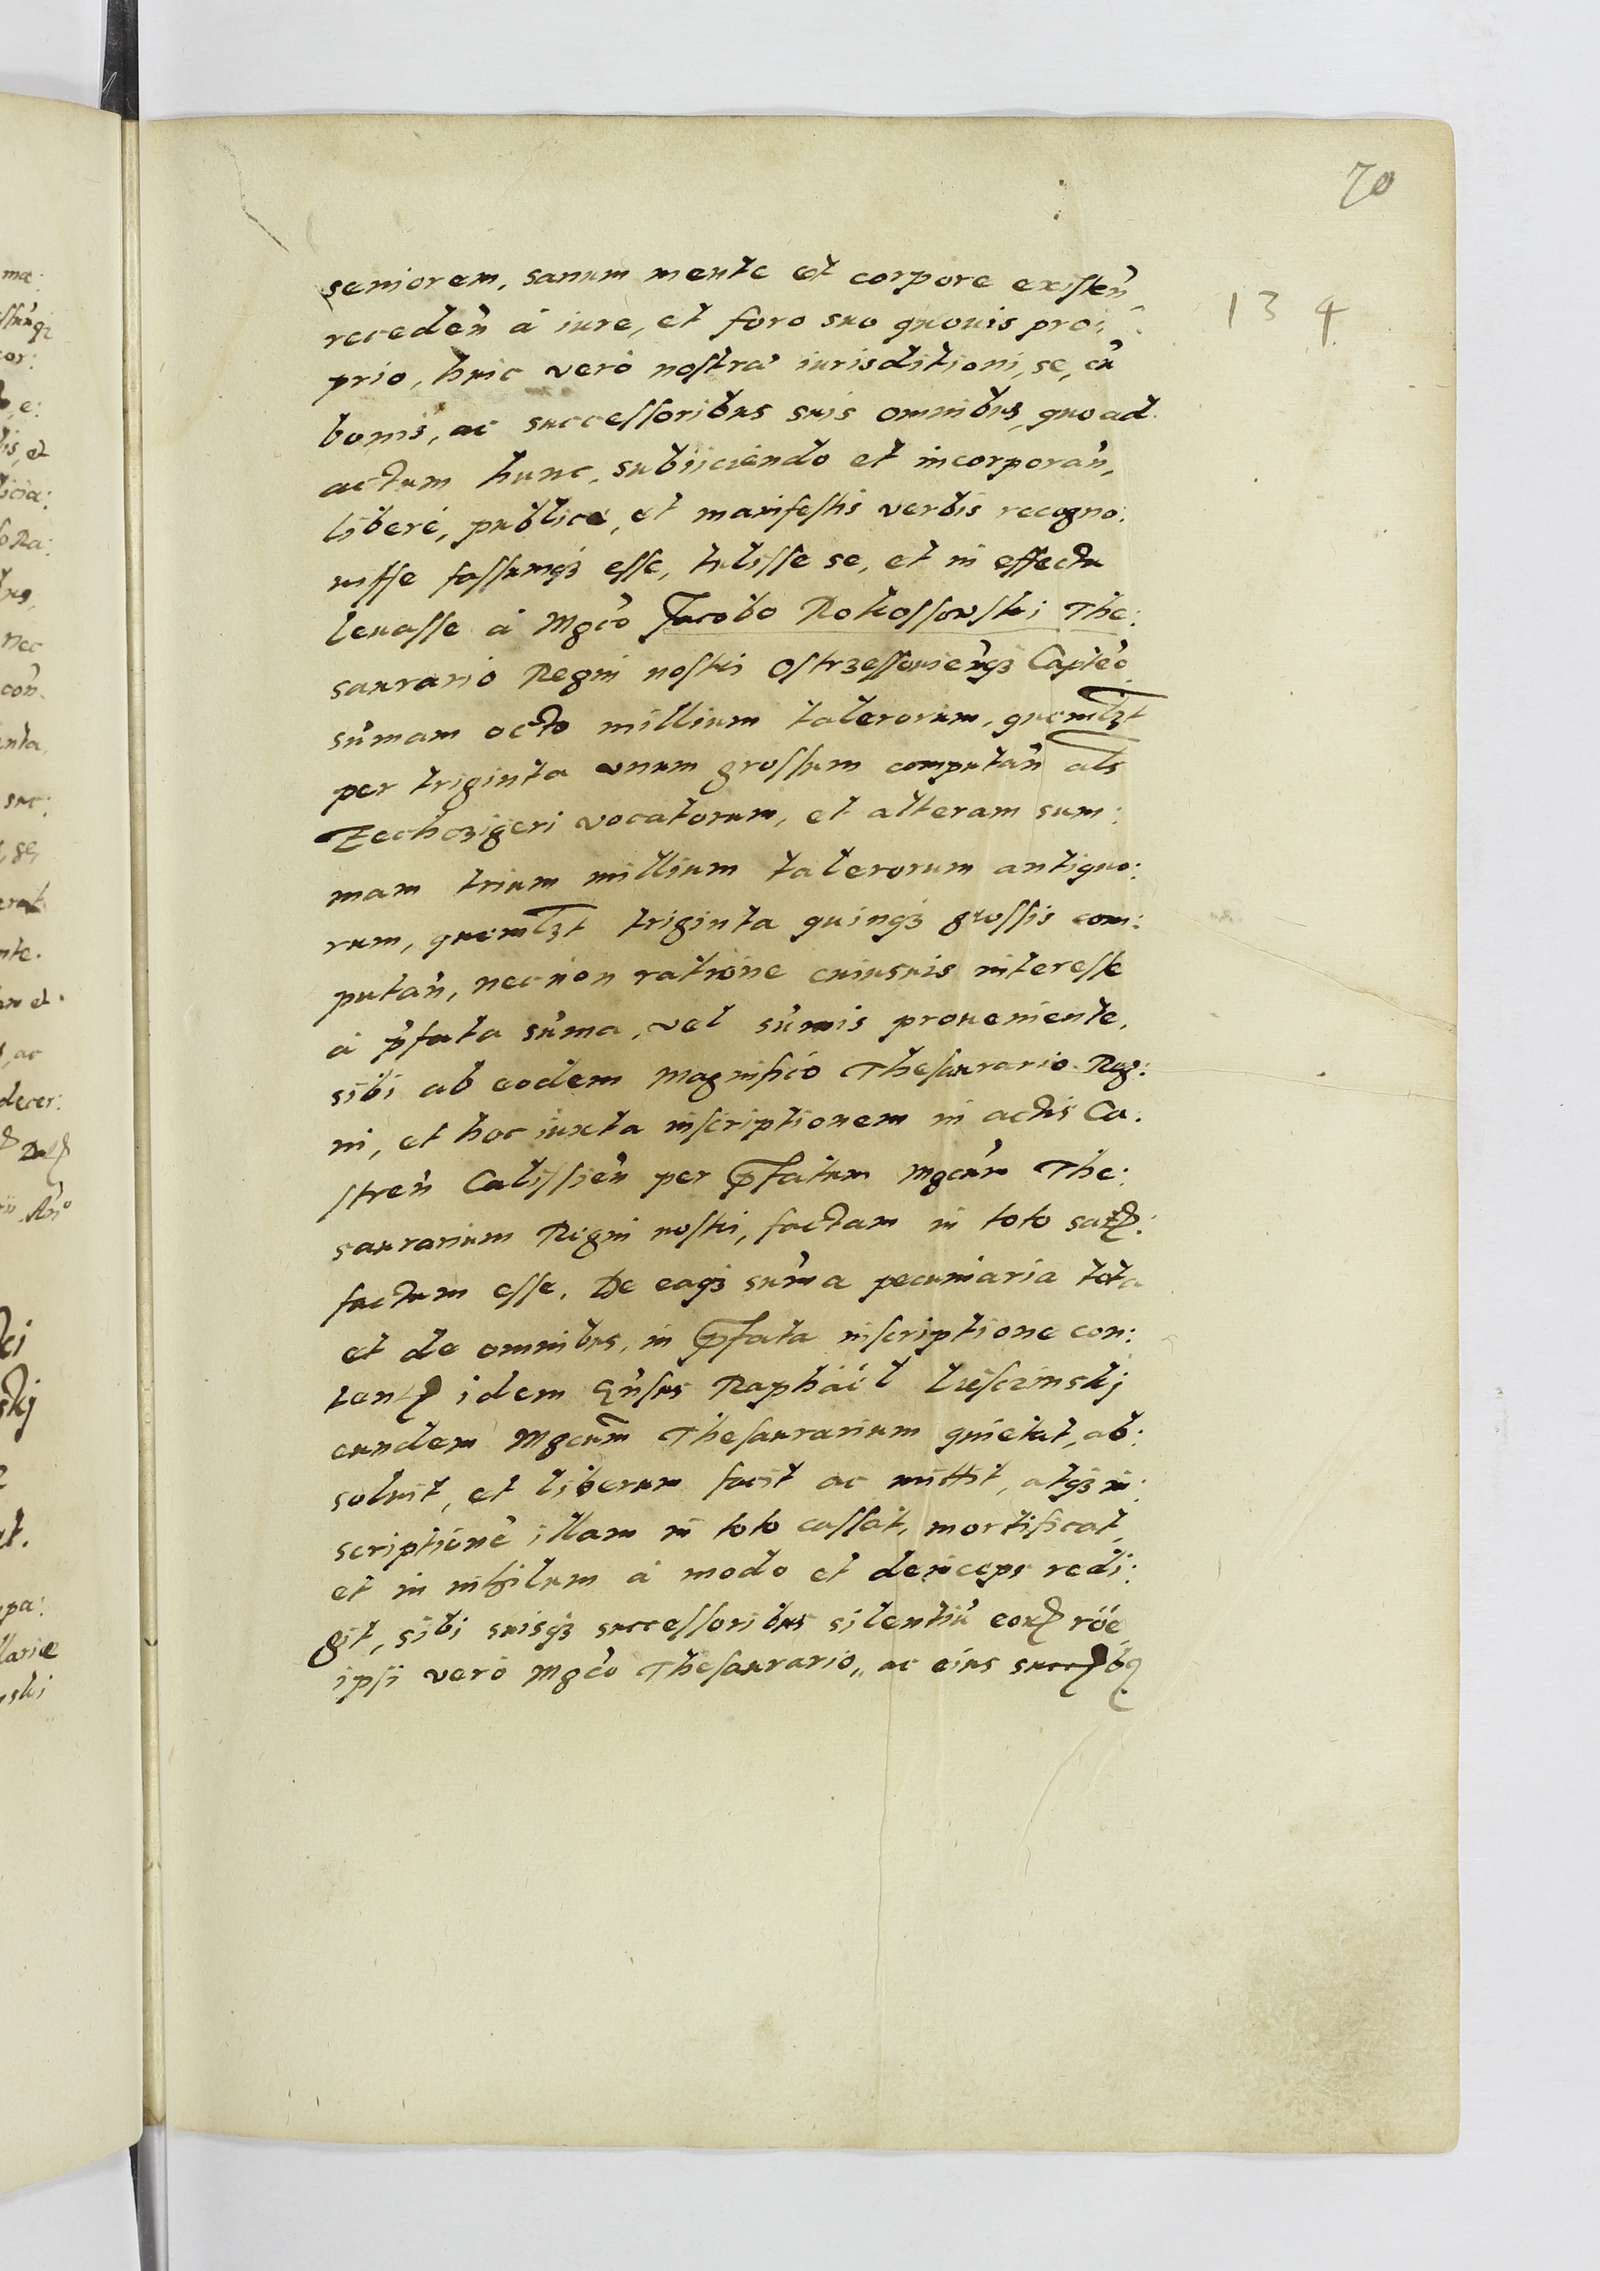 70
134
seniorem, sanum mente et corpore existeñ,
recedeñ à iure, et foro suo quouis pro:
prio, huic verò nostra iurisditioni, se, cũ
bonis, ac successoribus suis omnibus, quo ad
actum hunc, subiiciendo et incorporañ,
liberè, publicè, et manifestis verbis recogno:
uisse fassumqʒ esse, tulisse se, et in effectu
leuasse à Mgco Jacobo Rokossowski The:
saurario Regni nostri Ostrzessouieñqʒ Capteo
sũmam octo millium talerorum, quemlʒt
per triginta vnum grossum computañ als
Zechczigeri vocatorum, et alteram sum:
mam trium millium talerorum antiquo:
rum, quemlʒt triginta quinqʒ grossis com:
putañ, necnon ratione cuiusuis interesse
à p̃fata sũma, vel sũmis proueniente,
sibi ab eodem Magnifico Thesaurario Reg:
ni, et hoc iuxta inscriptionem in actis Ca:
streñ Calissieñ per p̃fatum Mgcum The:
saurarium Regni nostri, factam in toto satis:
factum esse. De eaqʒ sũma pecuniaria tota
et de omnibus, in p̃fata inscriptione con:
tentis idem Gñsus Raphäel Liesczinskj
eundem Mgcum Thesaurarium quietat, ab:
soluit, et liberum facit ac mittit, atqʒ in:
scriptionẽ illam in toto cassat, mortificat,
et in nihilum à modo et deinceps redi:
git, sibi suisqʒ successoribus silentiũ eoruʒ röe
ipsi verò Mgco Thesaurario, ac eius succʒbꝯ